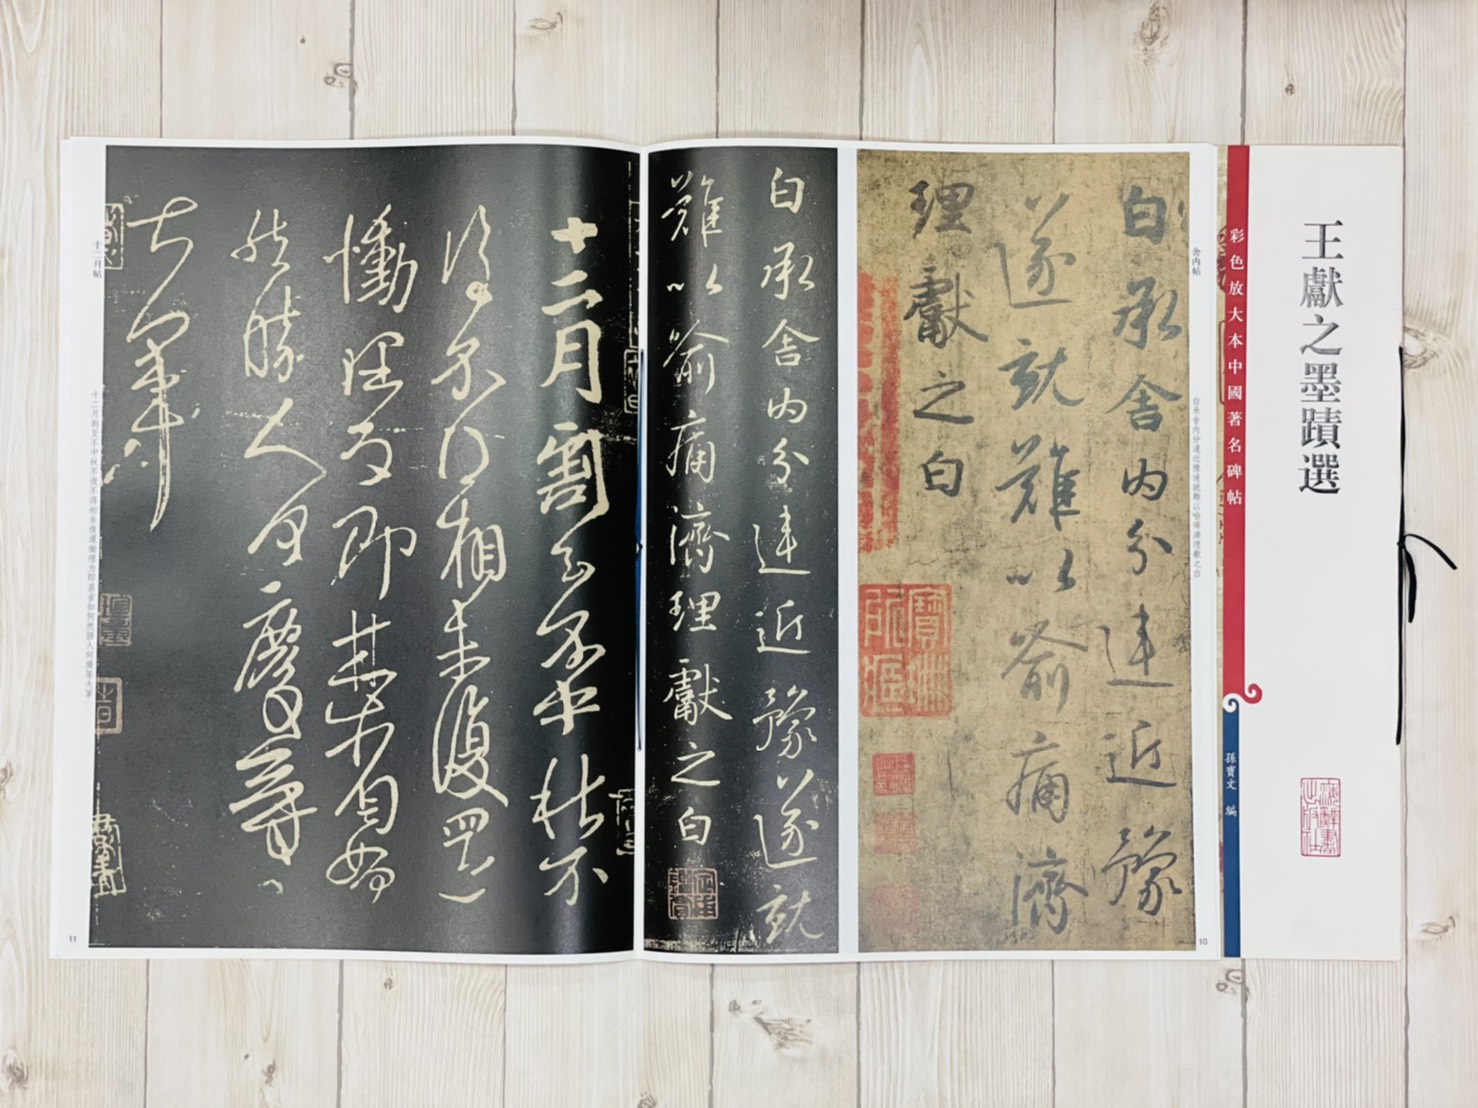 王獻之墨蹟選
彩色放大本中國著名碑帖
孫寶文 編
上海辭書出版社
舍內帖
白承舍內分違近豫遂就難以喻痛濟理獻之白
白承舍內分違近豫
遂就難以喻痛濟
理獻之白
10
白承舍內分違近豫遂就
難以喻痛濟理獻之白
十二月割至不中秋不
復不得相未復還
慟理為即甚省如
何然勝人何慶等
大軍
十二月帖
十二月割至不中秋不復不得相未復還慟理為即甚省如何然勝人何慶等大軍
11